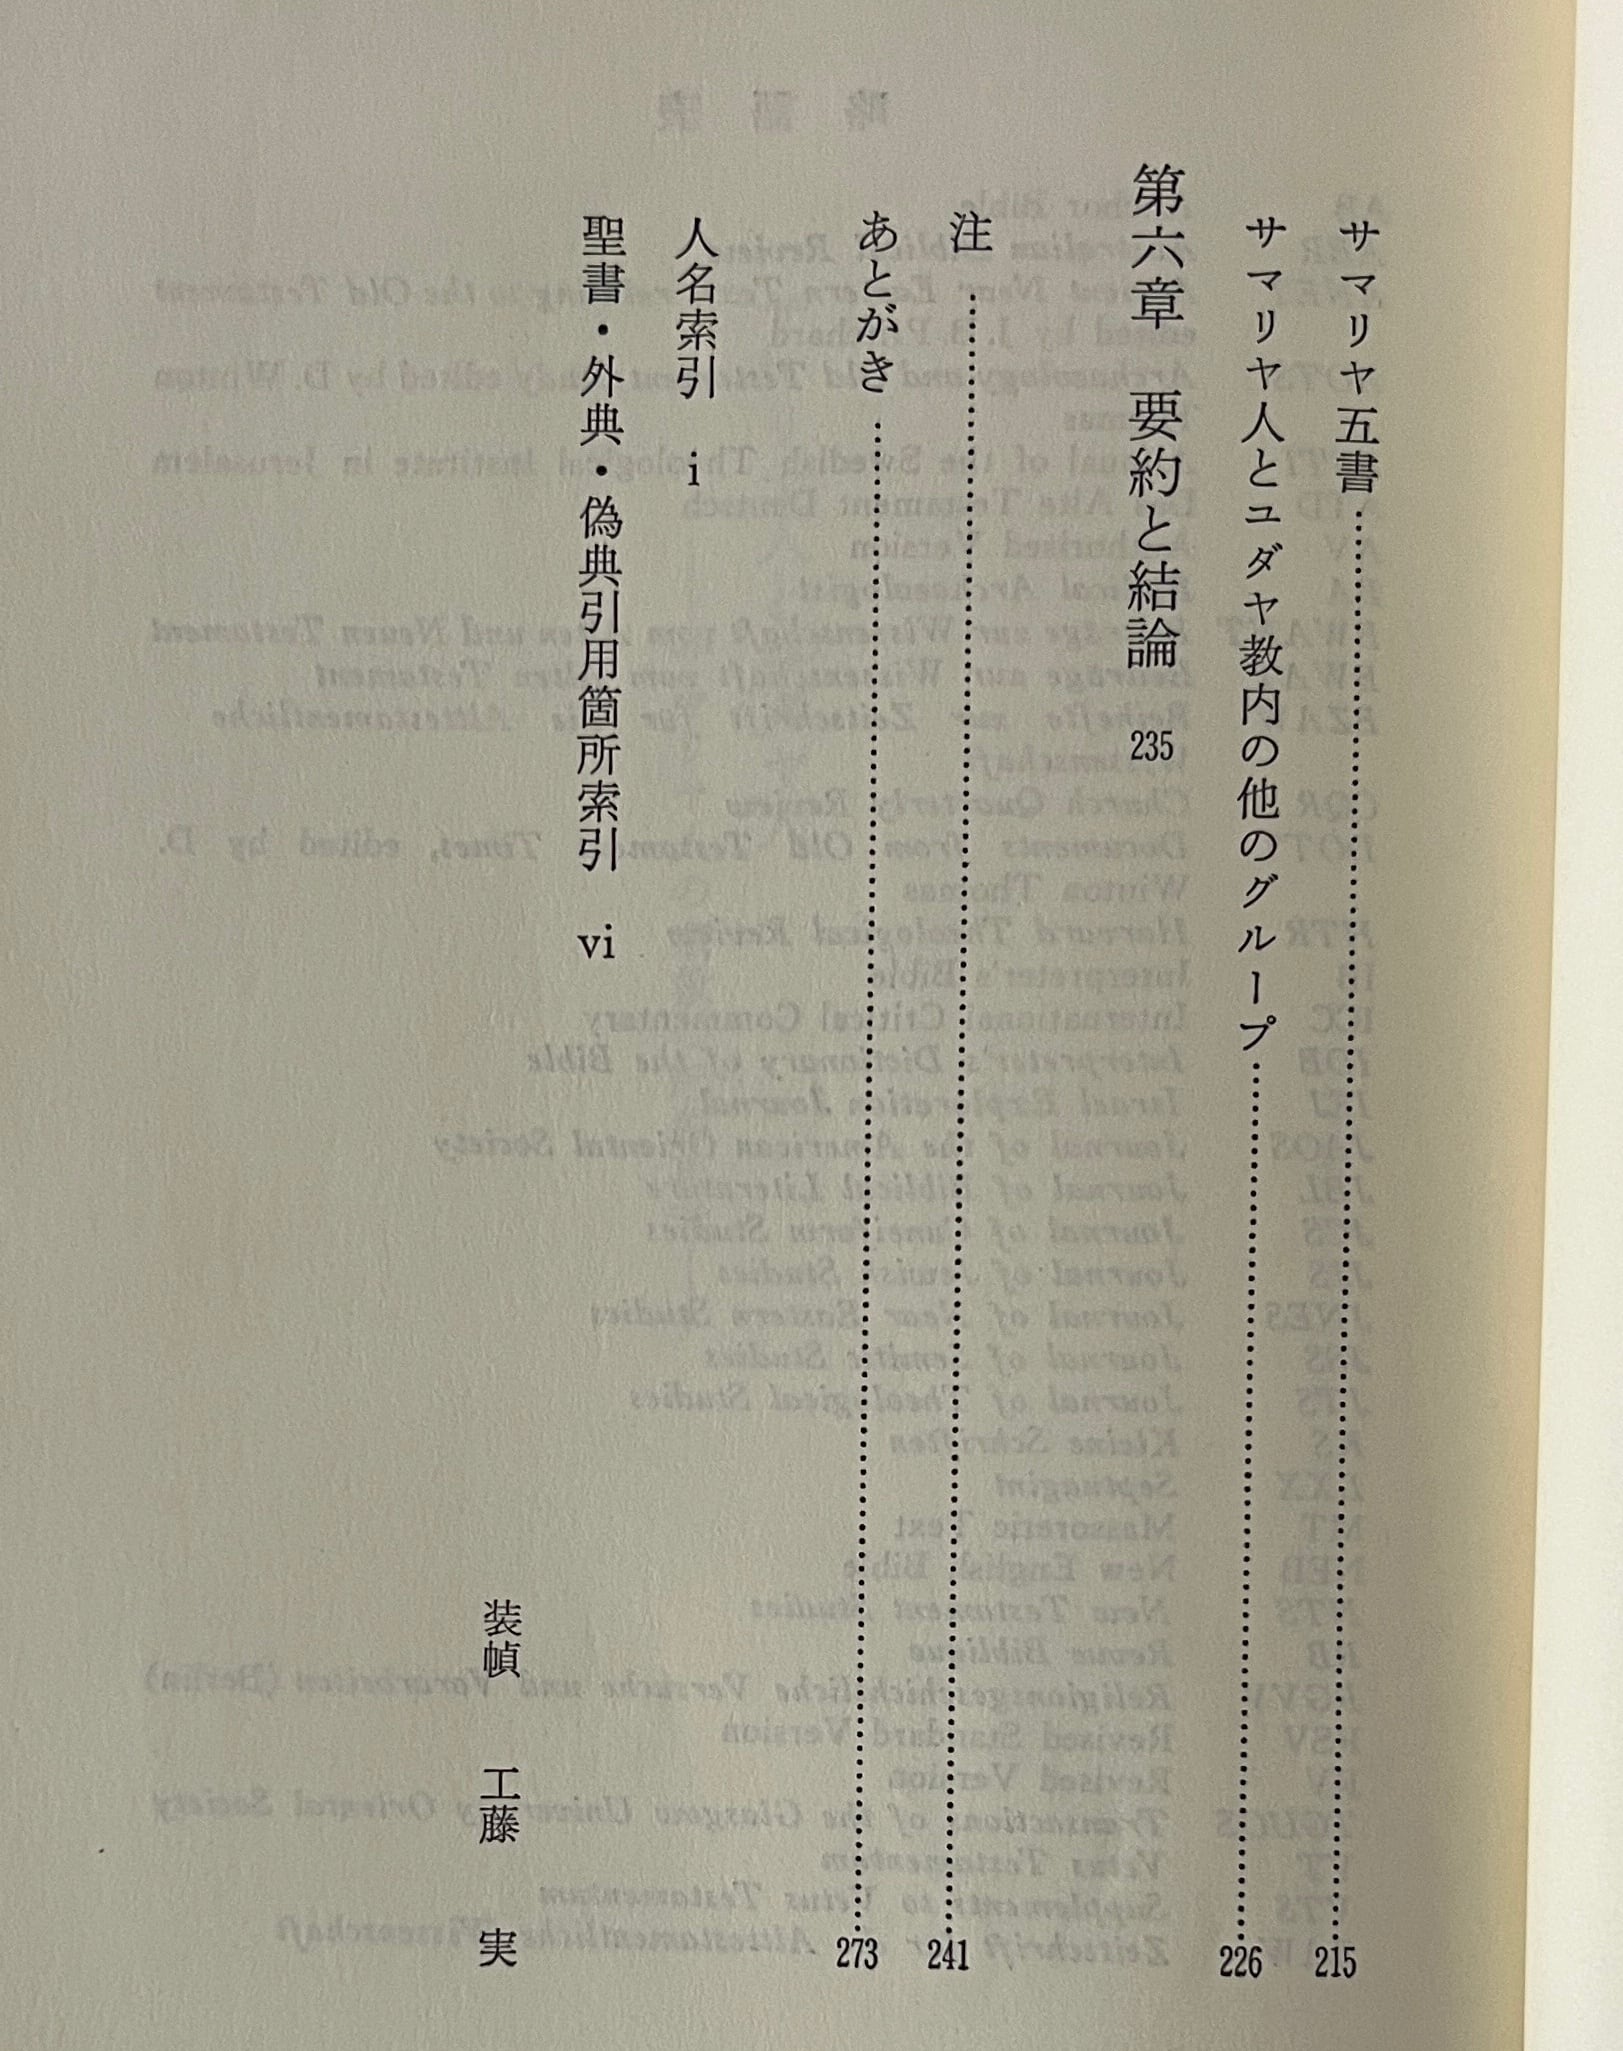 サマリヤ五書……215
サマリヤ人とユダヤ教内の他のグループ……226
第六章　要約と結論　235
注……241
あとがき……273
人名索引　i
聖書・外典・偽典引用箇所索引　vi
装幀　工藤　実